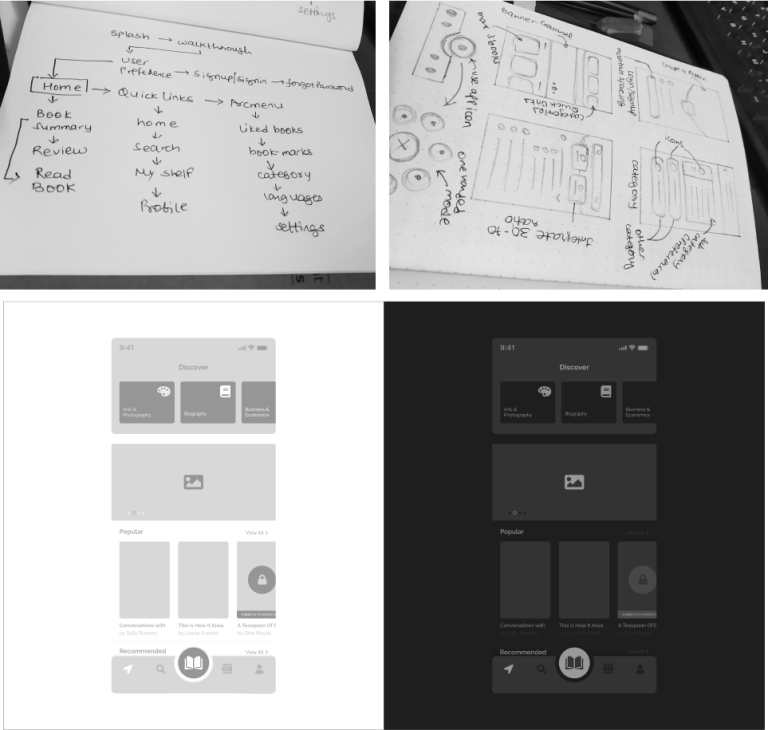 settings
splash → walkthrough
user
Preference → Signup/Signin → forgot Password
Home → Quick Links → Arcmenu
Book
Summary
Review
Read
Book
home
Search
My shelf
Profile
Liked books
book marks
category
languages
settings
Banner Carousel
max 3 books
Categories
Quick Links
use app icon
one handed
mode
Integrate 30-70
Ratio
Login/Signup
maintain spacing
icons
category
other
category
9:41
Discover
Arts &
Photography
Biography
Business &
Economics
Popular
View All >
Conversations with
by Sally Rooney
This Is How It Alwa
by Laurie Frankel
A Teaspoon Of E
by Dina Mayuri
Recommended
View All >
9:41
Discover
Arts &
Photography
Biography
Business &
Economics
Popular
View All >
Conversations with
This Is How It Alwa
A Teaspoon Of E
Recommended
View All >